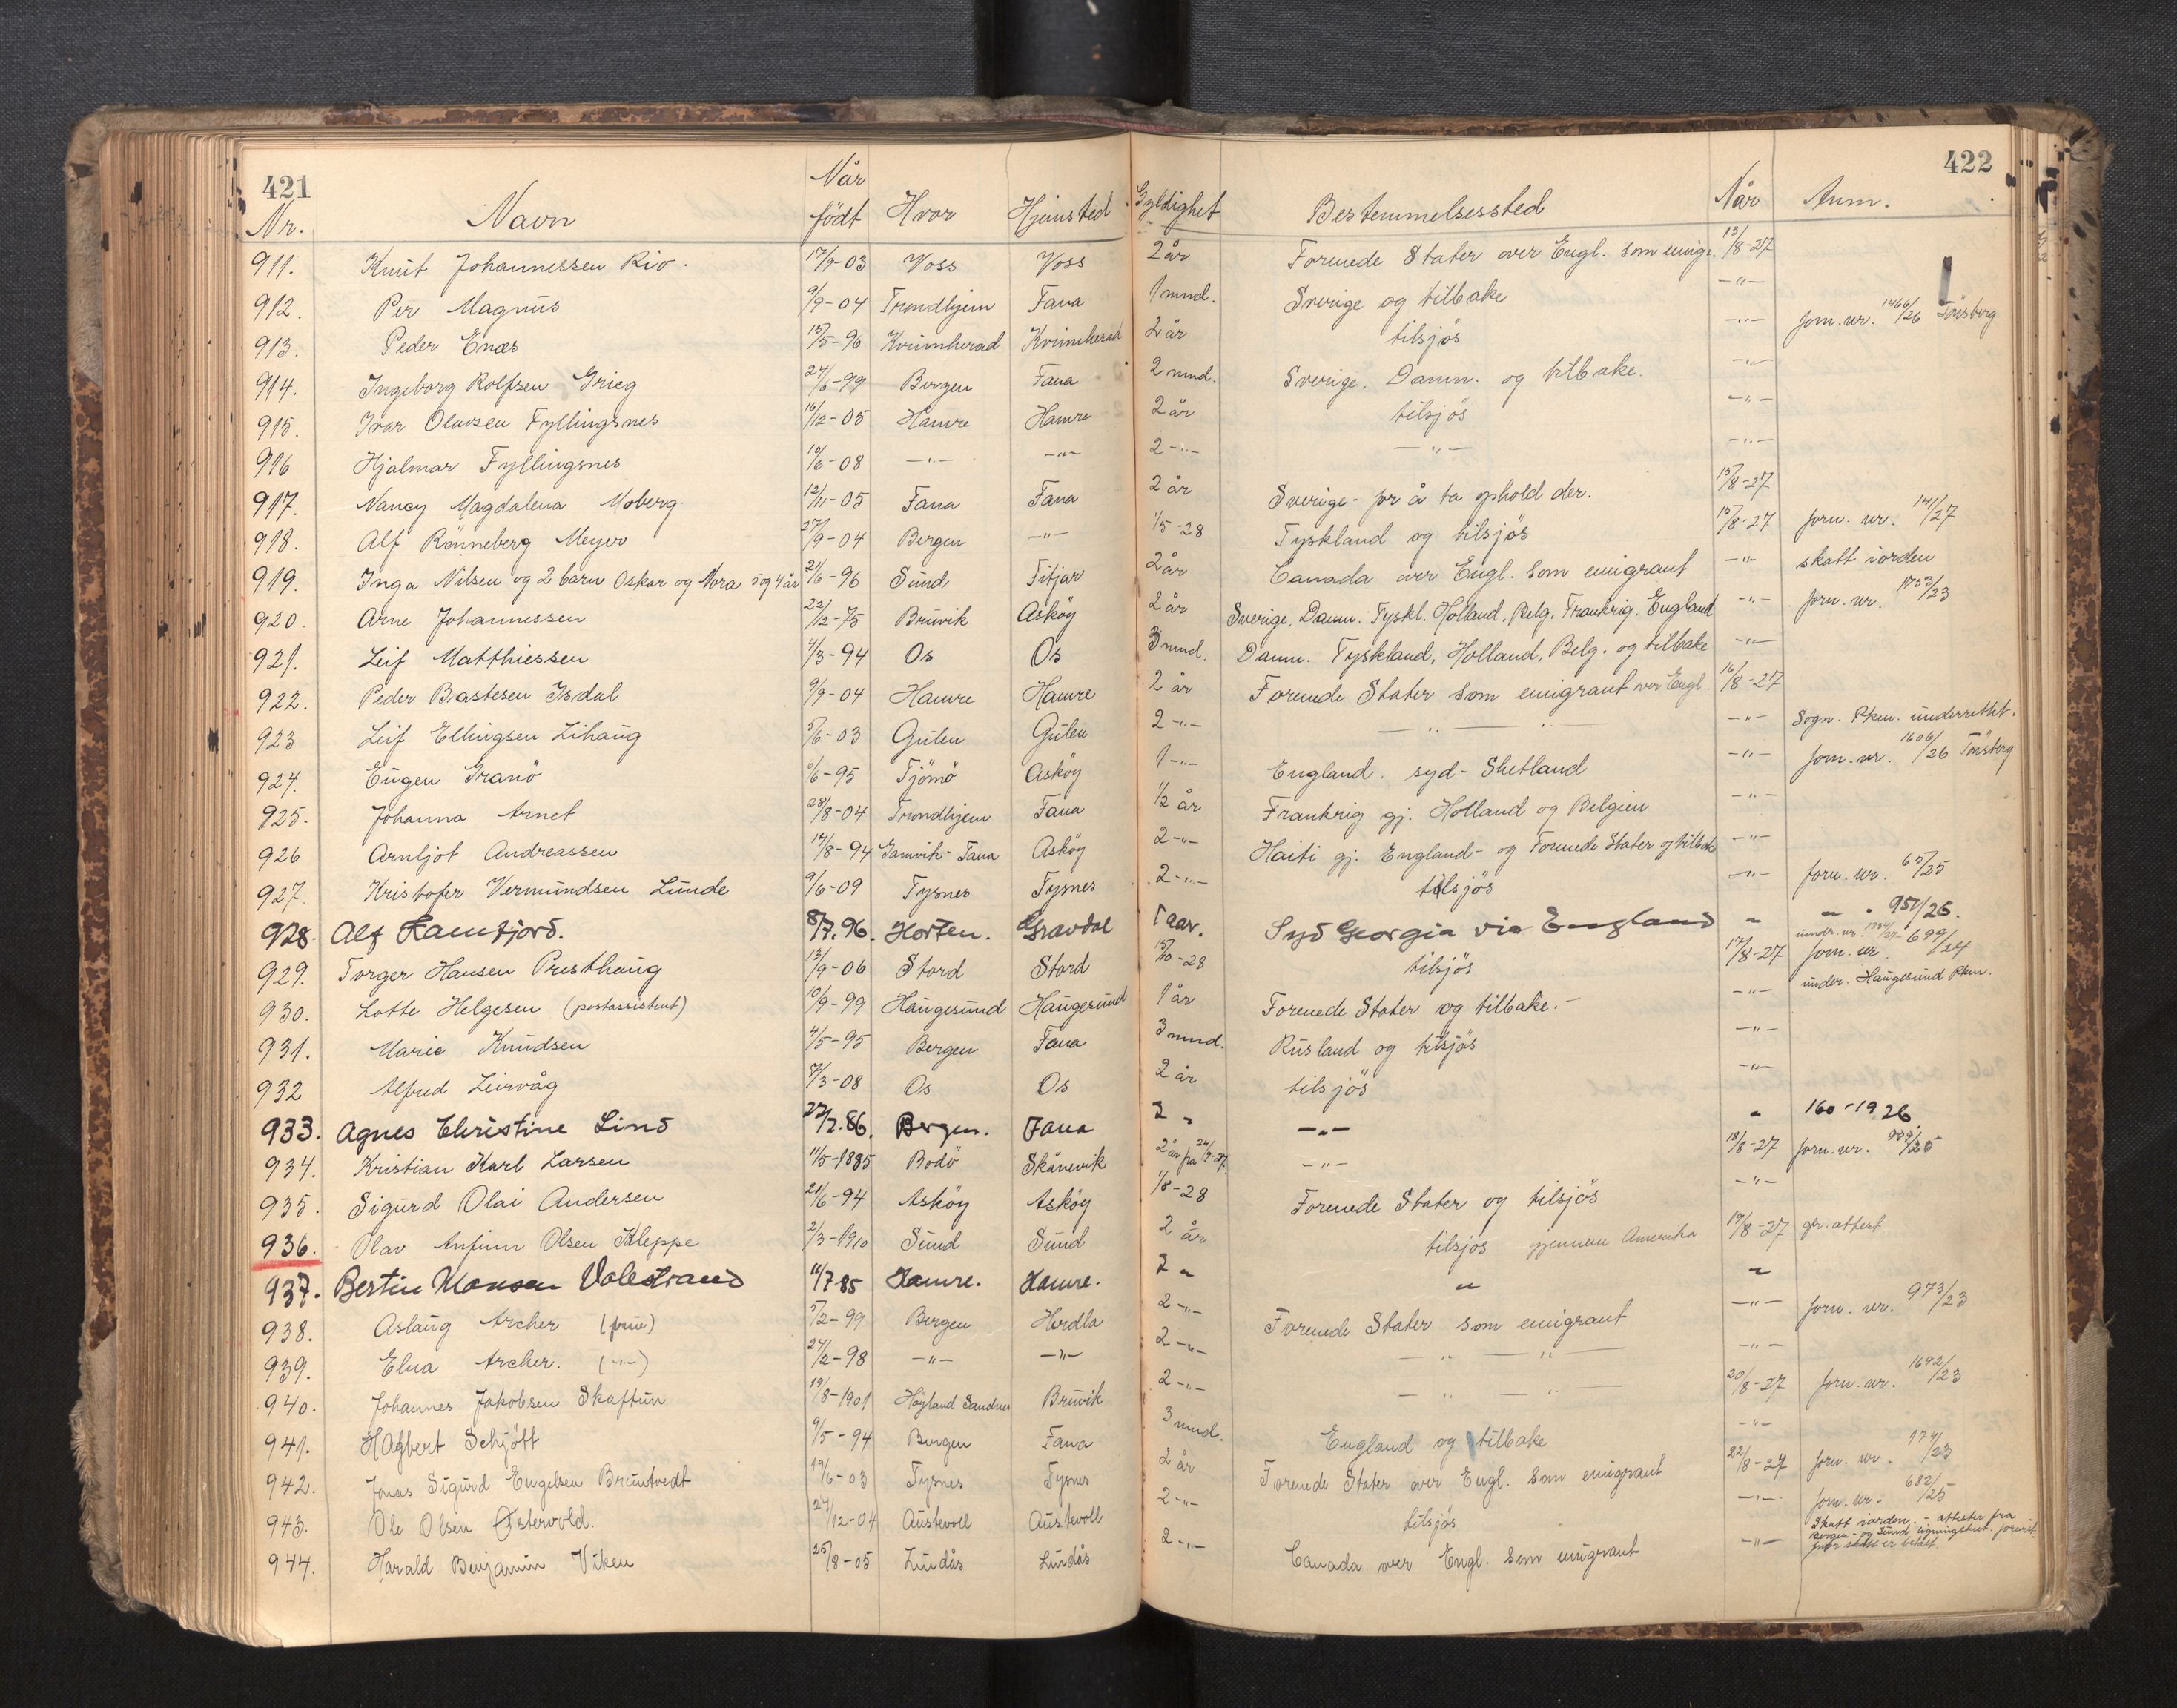 421
422
Nr. Navn Når født Hvor Hjemsted Gyldighet Bestemmelsessted Når Anm.
911. Knut Johannessen Rio. 17/9-03 Voss Voss 2 år Forenede Stater over Engl. som emigr. 13/8-27
912. Per Magnus 9/9-04 Trondhjem Fana 1 mnd. Sverige og tilbake -"-
913. Peder Enæs 15/5-96 Kvinnherad Kvinnherad 2 år tilsjös -"- forn. nr. 1466/26 Tönsberg
914. Ingeborg Rolfsen Grieg 27/6-99 Bergen Fana 2 mnd. Sverige, Danm. og tilbake. -"-
915. Ivar Olavsen Fyllingsnes 16/12-05 Hamre Hamre 2 år tilsjös -"-
916 Hjalmar Fyllingsnes 10/6-08 -"- -"- 2 -"- -"- -"-
917. Nancy Magdalena Moberg 12/11-05 Fana Fana 2 år Sverige - for å ta ophold der. 15/8-27
918. Alf Rönneberg Meyer 27/9-04 Bergen -"- 1/5-28 Tyskland og tilsjös 15/8-27 forn. nr. 141/27
919. Inga Nilsen og 2 barn Oskar og Nora 5 og 4 år 21/6-96 Sund Fitjar 2 år Canada over Engl. som emigrant -"- skatt iorden
920. Arne Johannessen 22/12-75 Bruvik Asköy 2 år Sverige, Danm. Tyskl. Holland, Belg. Frankrig. England -"- forn. nr. 1753/23
921. Leif Matthiessen 4/3-94 Os Os 3 mnd. Danm. Tyskland, Holland, Belg. og tilbake -"-
922. Peder Bastesen Isdal 9/9-04 Hamre Hamre 2 år Forenede Stater som emigrant over Engl. 16/8-27
923 Leif Ellingsen Lihaug 5/6-03 Gulen Gulen 2 -"- -"- -"- Sogn. Pkm. underrettet.
924. Eugen Granö /6-95 Tjömö Asköy 1 -"- England. syd-Shetland -"- forn. nr. 1606/26 Tönsberg
925. Johanna Arnet 28/8-04 Trondhjem Fana 1/2 år Frankrig gj. Holland og Belgien -"-
926 Arnljot Andreassen 14/8-94 Gamvik-Tana Asköy 2 -"- Haiti gj. England- og Forenede Stater og tilbake -"-
927. Kristofer Vermundsen Lunde 9/6-09 Tysnes Tysnes 2 -"- tilsjös -"- forn. nr. 65/25
928. Alf Ramfjord. 8/7.96. Horten. Gravdal 1 aar. Syd Georgia via England " " " 951/26.
929. Torger Hansen Presthaug 13/9-06 Stord Stord 15/10-28 tilsjös 17/8-27 forn. nr. 699/24
930. Lotte Helgesen (postassistent) 10/9-99 Haugesund Haugesund 1 år Forenede Stater og tilbake. - -"- under. Haugesund Pkm.
931. Marie Knudsen 4/5-95 Bergen Fana 3 mnd. Rusland og tilsjös -"-
932 Alfred Leirvåg /3-08 Os Os 2 år tilsjös -"-
933. Agnes Christine Lind 27/2.86. Bergen. Fana 2 " -"- " 160-1926
934. Kristian Karl Larsen 11/5-1885 Bodö Skånevik 2 år fra 24/9-27 -"- 18/8-27 forn. nr. /25
935. Sigurd Olai Andersen 21/6-94 Asköy Asköy 1/8-28 Forenede Stater og tilsjös -"-
936. Olav Anfinn Olsen Kleppe 2/3-1910 Sund Sund 2 år tilsjös gjennem Amerika 19/8-27 gr. attest
937. Bertin Monsen Valestrand 11/7-85 Hamre. Hamre. 2 " " "
938. Aslaug Archer (frue) 5/2-99 Bergen Herdla 2 -"- Forenede Stater som emigrant -"- forn. nr. 973/23
939. Elna Archer. (-"-) 24/2-98 -"- -"- 2 -"- -"- -"- -"-
940. Johannes Jakobsen Skaftun 19/8-1901 Höyland Sandnes Bruvik 2 -"- -"- -"- 20/8-27 forn. nr. 1692/23
941. Hagbert Schjött 9/5-94 Bergen Fana 3 mnd. England og tilbake -"-
942. Jonas Sigurd Engelsen Bruntvedt 19/6-03 Tysnes Tysnes 2 år Forenede Stater over Engl. som emigrant 22/8-27 forn. nr. 174/23
943. Ole Olsen Østervold. 27/12-04 Austevoll Austevoll 2 -"- tilsjös -"- forn. nr. 682/25
944. Harald Benjamin Viken 25/8-05 Lindås Lindås 2 -"- Canada over Engl. som emigrant -"- Skatt iorden. - attester fra Bergen- og Sund